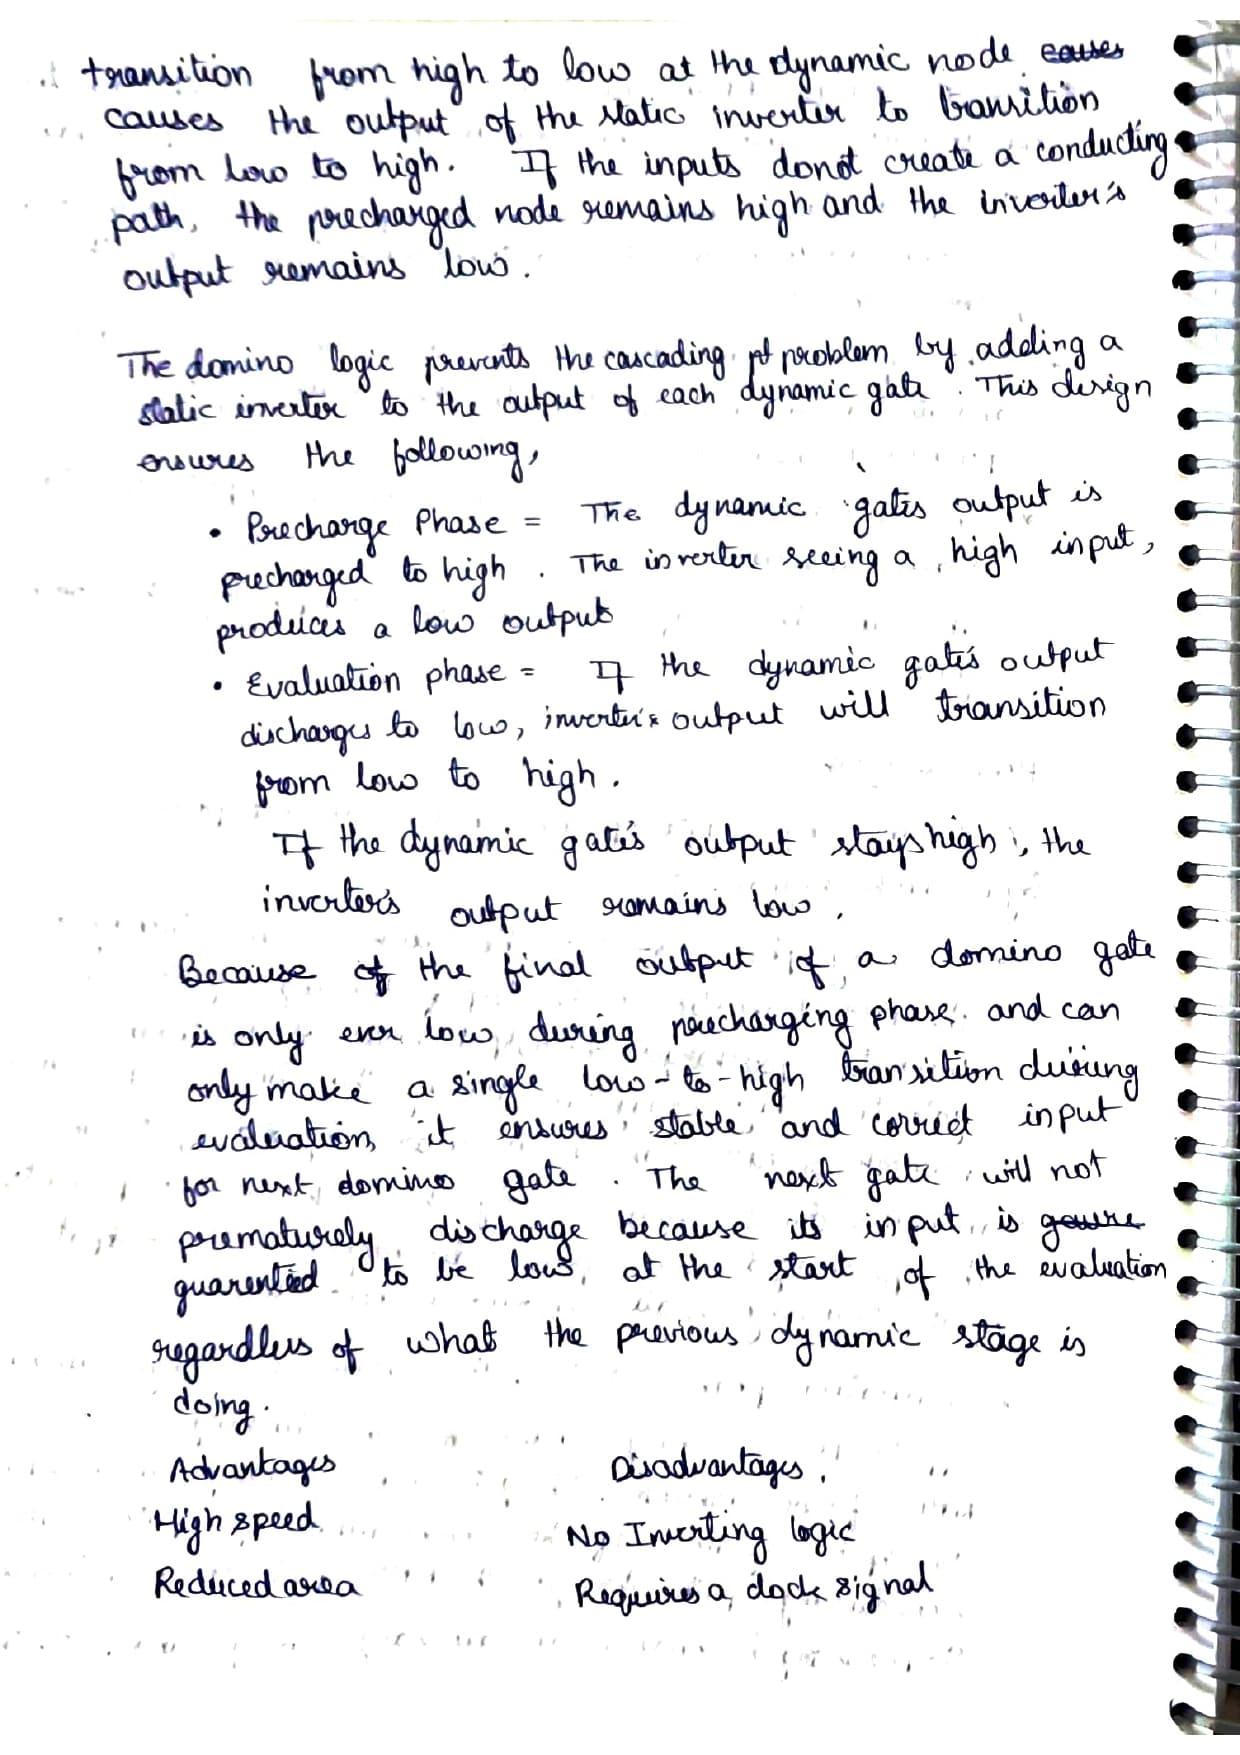 transition from high to low at the dynamic node causes
causes the output of the static inverter to transition
from low to high. If the inputs donot create a conducting
path, the precharged node remains high and the inverter's
output remains low.
The domino logic prevents the cascading problem by adding a
static inverter to the output of each dynamic gate. This design
ensures the following,
• Precharge Phase = The dynamic gates output is
precharged to high. The inverter seeing a high input,
produces a low output
• Evaluation phase = If the dynamic gate's output
discharges to low, inverter's output will transition
from low to high.
If the dynamic gate's output stays high, the
inverter's output remains low.
Because of the final output of a domino gate
is only ever low during precharging phase and can
only make a single low-to-high transition during
evaluation, it ensures stable and correct input
for next domino gate. The next gate will not
prematurely discharge because its input is
guarenteed to be low, at the start of the evaluation
regardless of what the previous dynamic stage is
doing.
Advantages Disadvantages.
High speed No Inverting logic
Reduced area Requires a clock signal